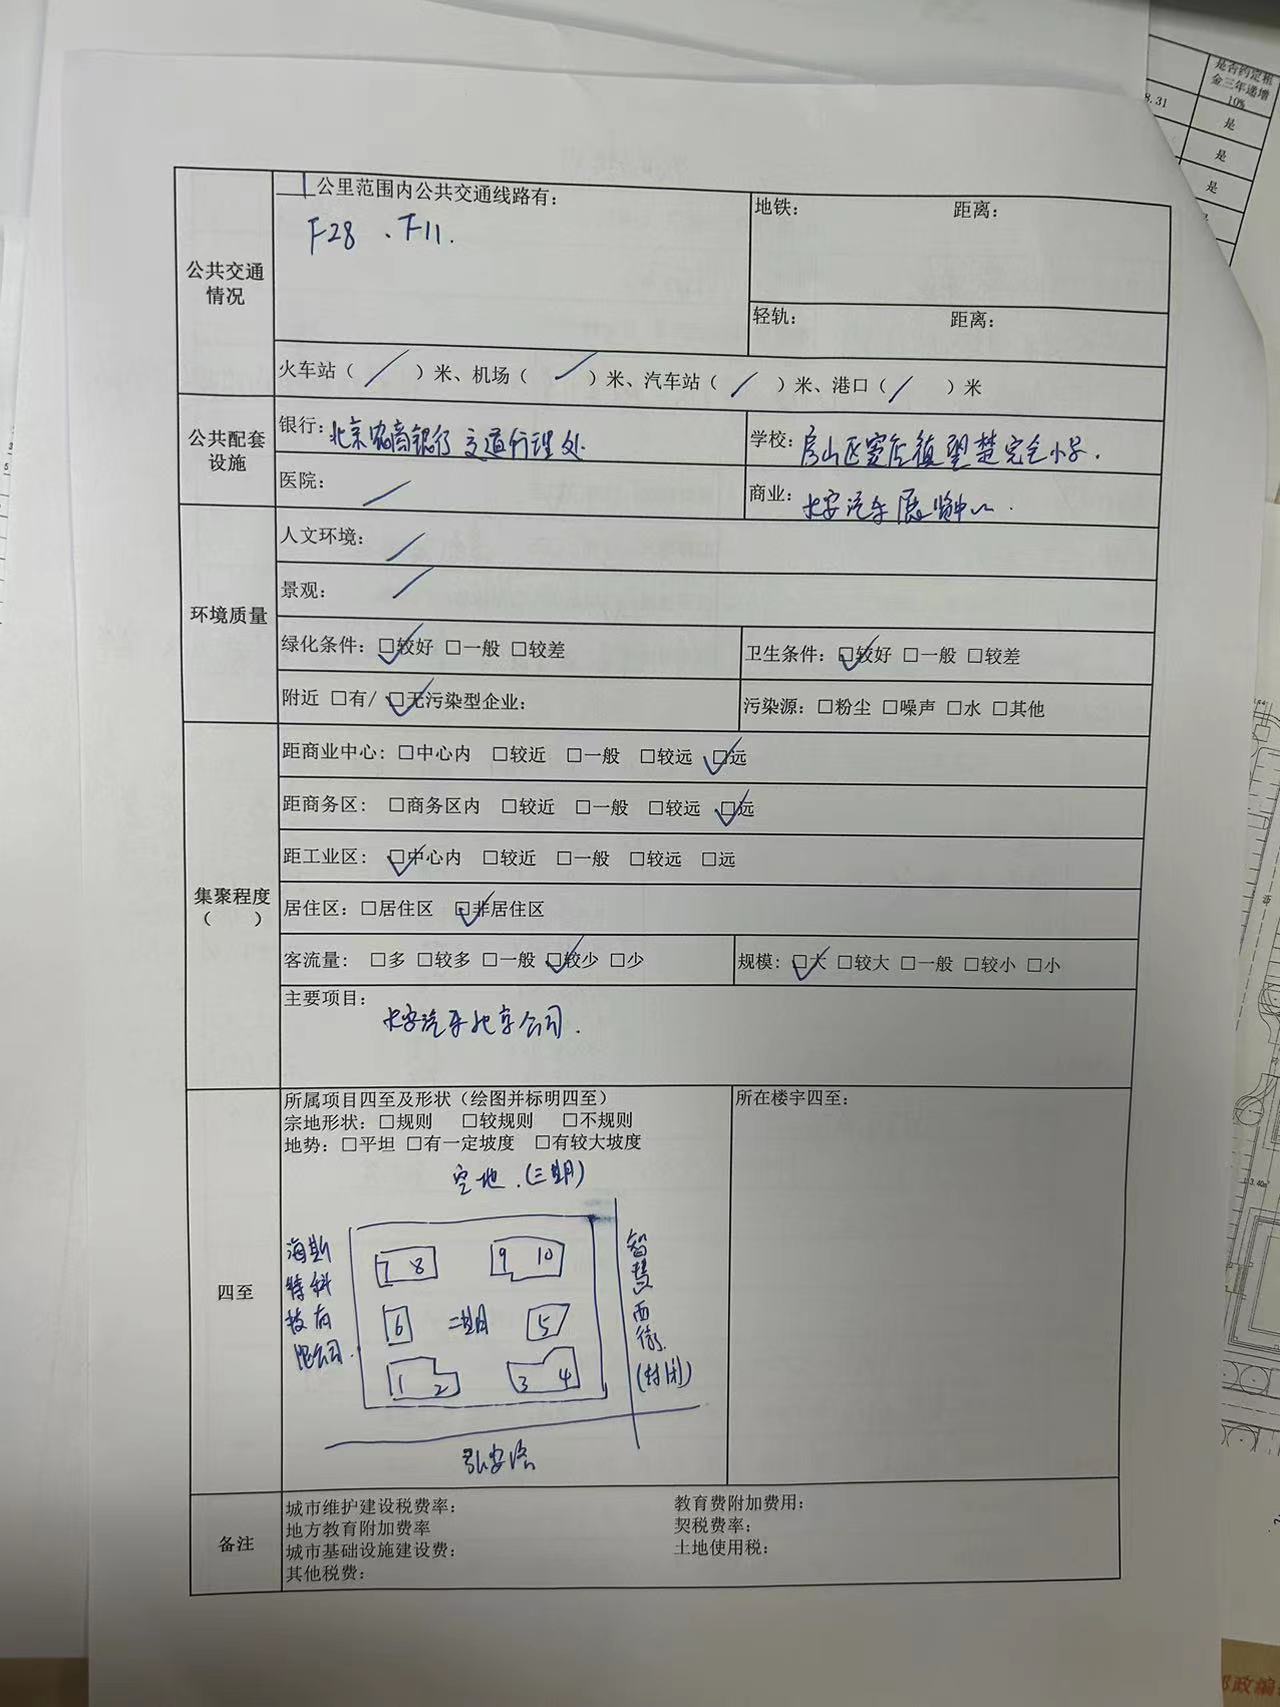 是否约定租
金三年递增
10%
8.31
是
是
是
公共交通
情况
1公里范围内公共交通线路有：
F28、F11.
地铁： 距离：
轻轨： 距离：
火车站（ / ）米、机场（ / ）米、汽车站（ / ）米、港口（ / ）米
公共配套
设施
银行：北京农商银行交道分理处
学校：房山区窦店镇望楚完全小学.
医院： /
商业：长安汽车展览中心.
环境质量
人文环境： /
景观： /
绿化条件：☑较好 □一般 □较差
卫生条件：☑较好 □一般 □较差
附近 □有/ ☑无污染型企业：
污染源：□粉尘 □噪声 □水 □其他
集聚程度
（ ）
距商业中心：□中心内 □较近 □一般 □较远 ☑远
距商务区： □商务区内 □较近 □一般 □较远 ☑远
距工业区： ☑中心内 □较近 □一般 □较远 □远
居住区：□居住区 ☑非居住区
客流量： □多 □较多 □一般 ☑较少 □少
规模：☑大 □较大 □一般 □较小 □小
主要项目：
长安汽车北京公司.
四至
所属项目四至及形状（绘图并标明四至）
宗地形状：□规则 □较规则 □不规则
地势：□平坦 □有一定坡度 □有较大坡度
所在楼宇四至：
空地.(三期)
海斯
特科
技有
限公司.
7 8
9 10
6
二期
5
1 2
3 4
智慧西街.
(封闭)
弘安路
备注
城市维护建设税费率：
教育费附加费用：
地方教育附加费率
契税费率：
城市基础设施建设费：
土地使用税：
其他税费：
3.40㎡
邮政编